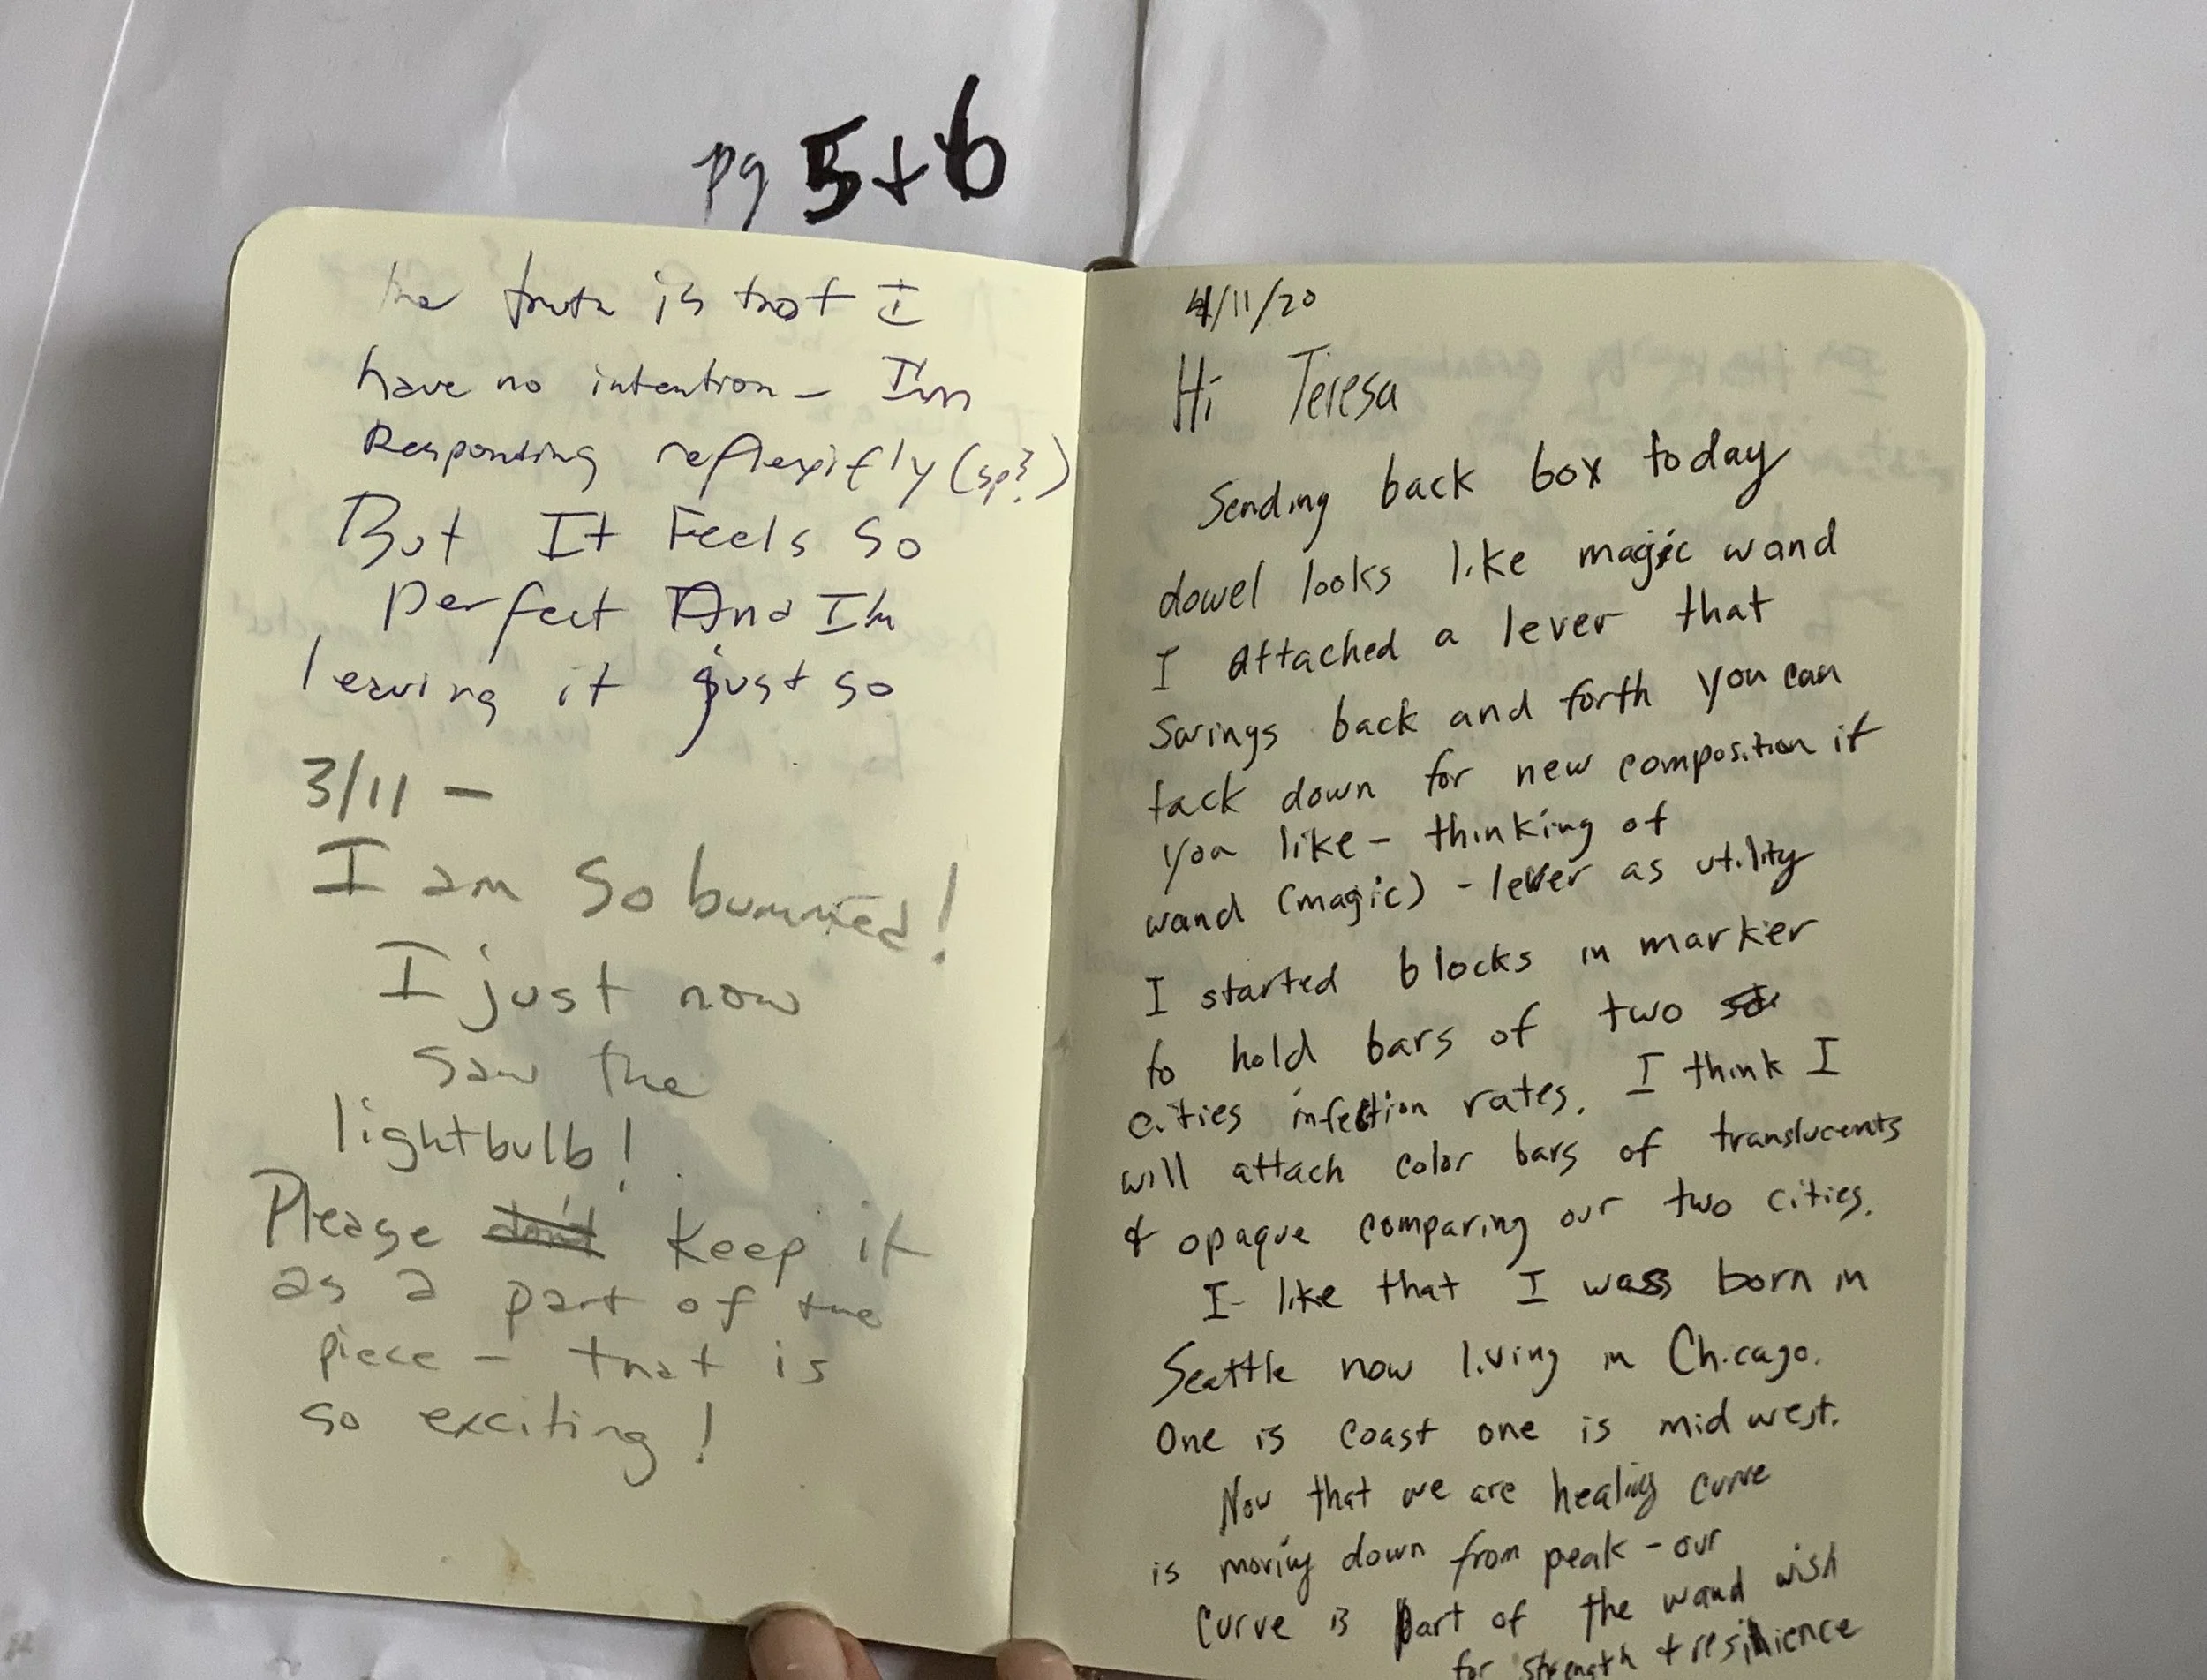 pg 5+6
the truth is that I
have no intention - I'm
Responding reflexifly (sp?)
But It Feels So
perfect And I'm
leaving it just so
3/11 -
I am so bummed!
I just now
saw the
lightbulb!
Please don't keep it
as a part of the
piece - that is
so exciting!
4/11/20
Hi Teresa
Sending back box today
dowel looks like magic wand
I attached a lever that
swings back and forth you can
tack down for new composition if
you like - thinking of
wand (magic) - lever as utility
I started blocks in marker
to hold bars of two
cities infection rates. I think I
will attach color bars of translucents
& opaque comparing our two cities.
I like that I was born in
Seattle now living in Chicago.
One is coast one is mid west.
Now that we are healing curve
is moving down from peak - our
curve is part of the wand wish
for strength + resilience